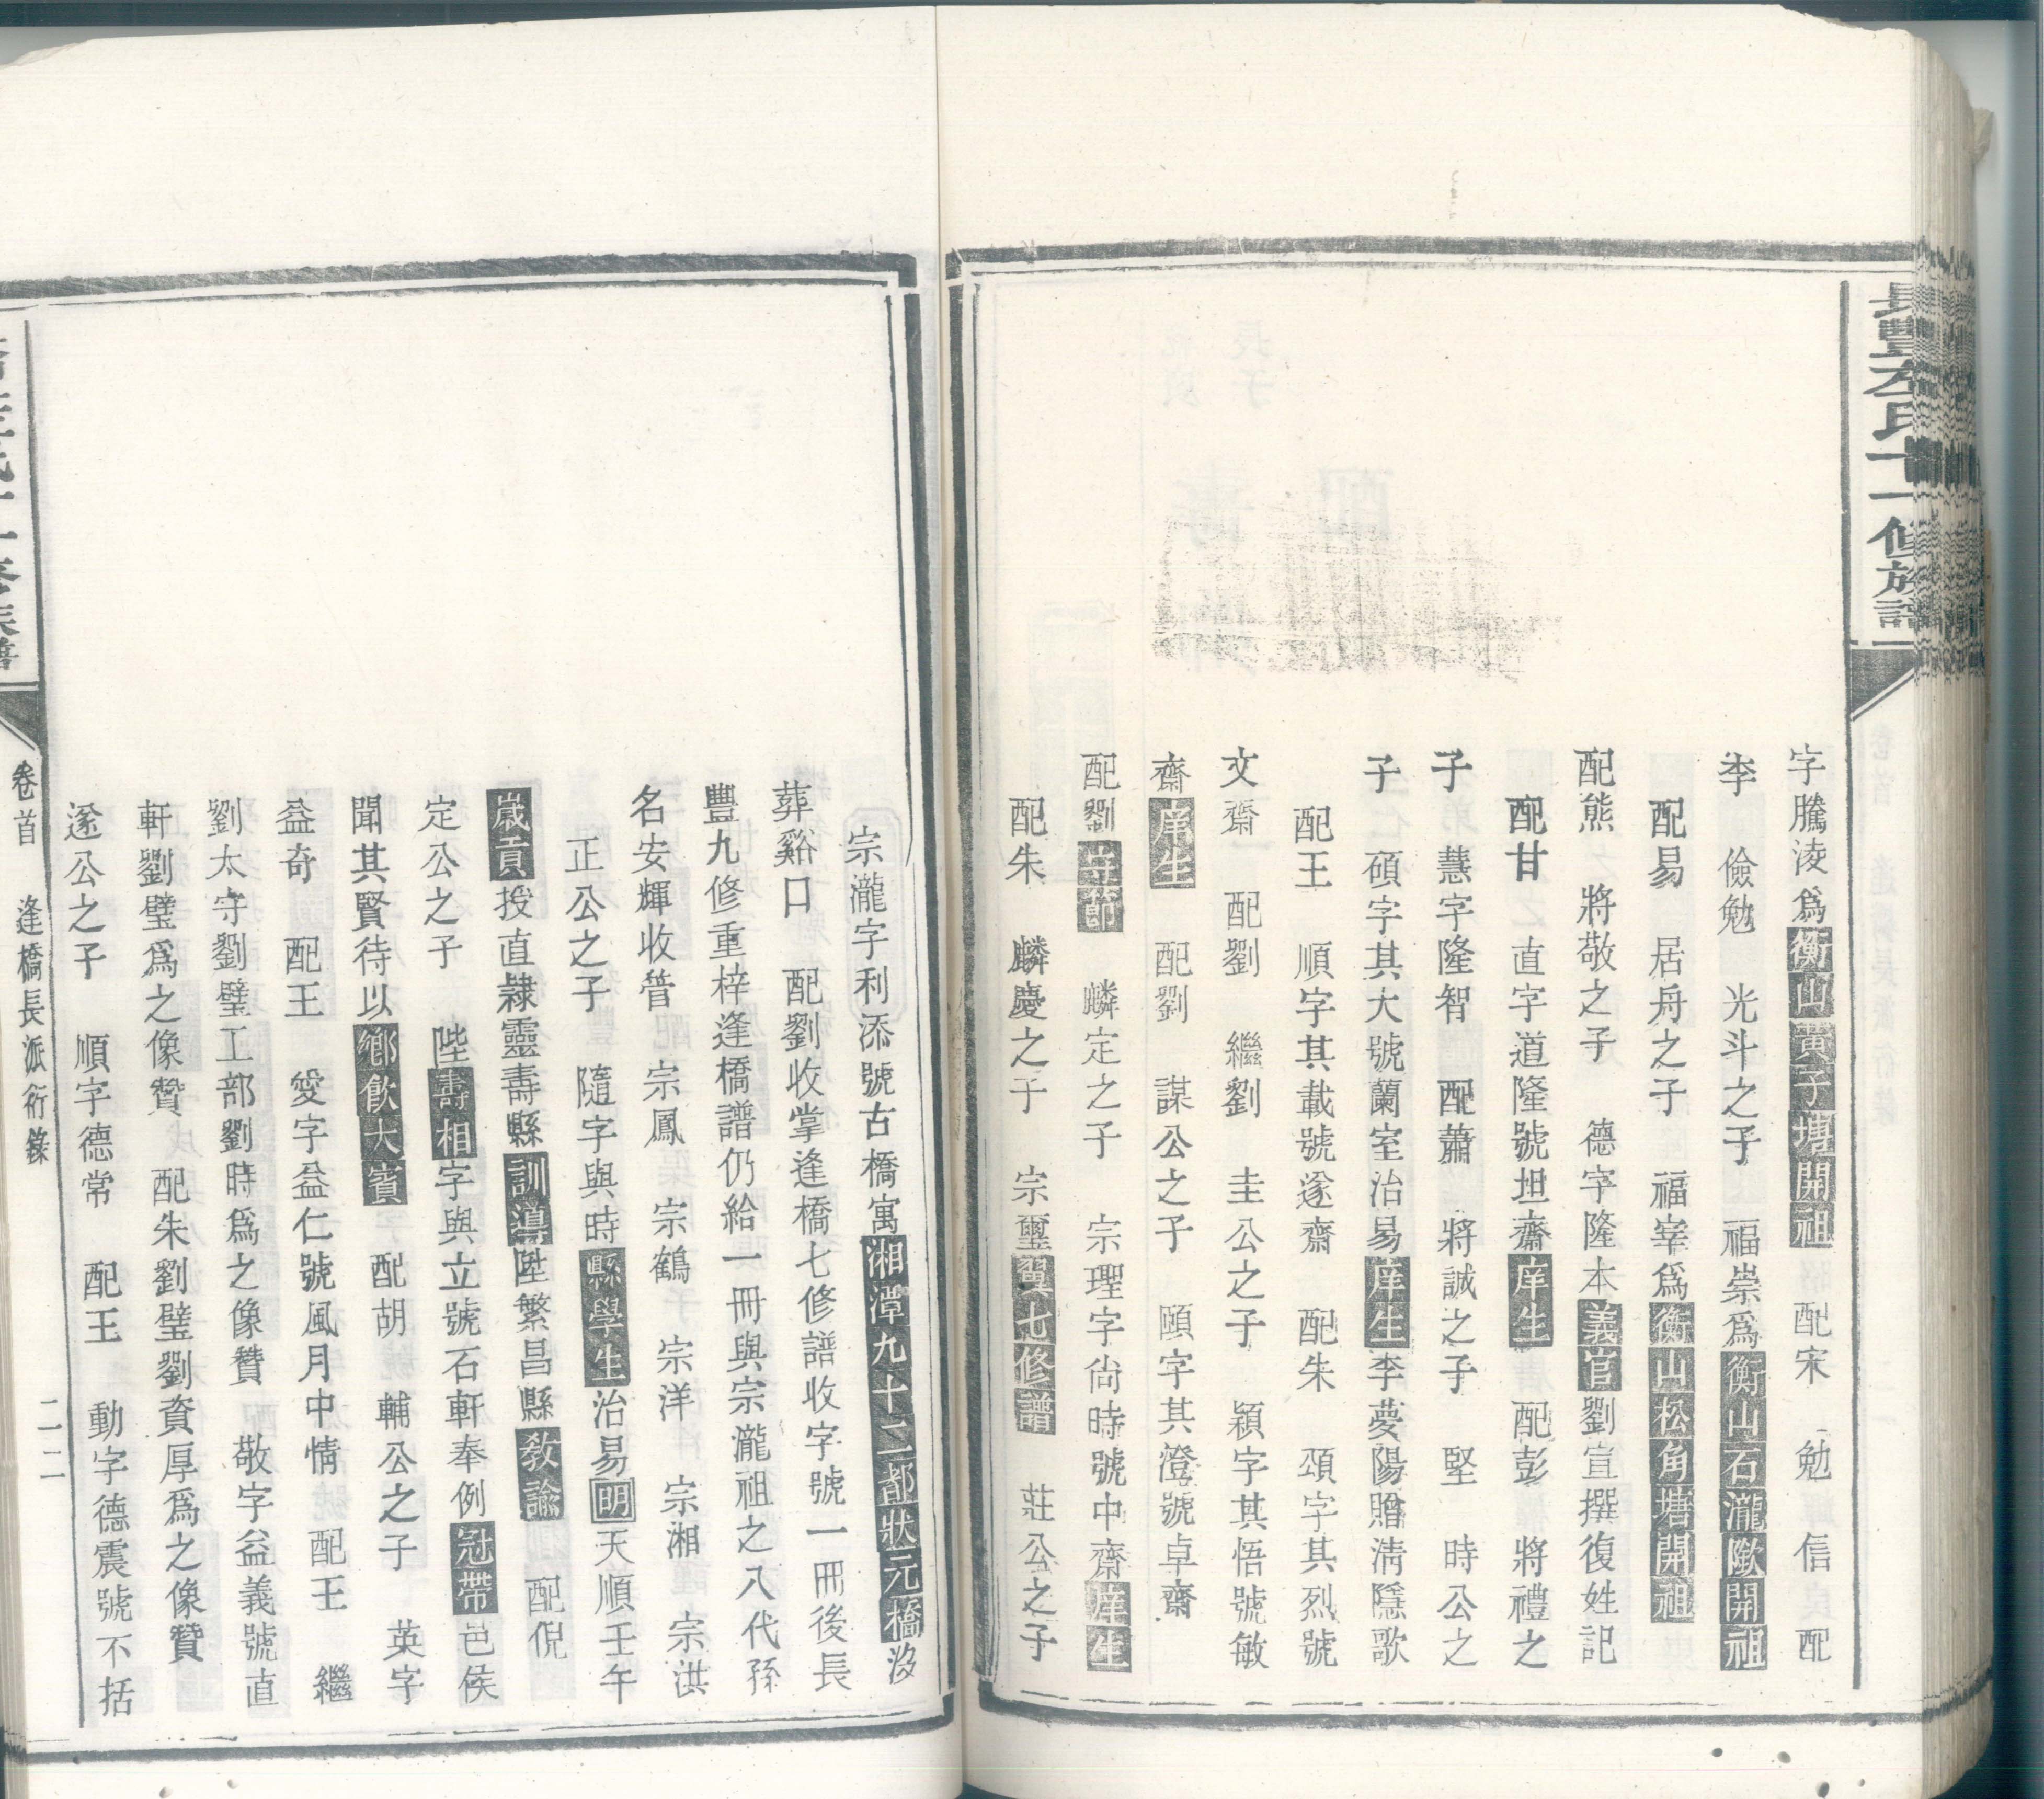 長豐左氏十一修族譜
字騰淩爲衡山黃子塘開祖　配宋　勉　信　配
李　儉勉　光斗之子　福崇爲衡山石瀧歟開祖
配易　居舟之子　福宰爲衡山松角塘開祖
配熊　將敬之子　德字隆本義官劉宣撰復姓記
配甘　直字道隆號坦齋庠生　配彭　將禮之
子　慧字隆智　配蕭　將誠之子　堅　時公之
子　碩字其大號蘭室治易庠生李夢陽贈淸隱歌
配王　順字其載號遂齋　配朱　頌字其烈號
文齋　配劉　繼劉　圭公之子　穎字其悟號敏
齋庠生　配劉　謀公之子　頤字其澄號卓齋
配劉寺節　麟定之子　宗理字尙時號中齋庠生
配朱　麟慶之子　宗璽翼七修譜　莊公之子
宗瀧字利添號古橋寓湘潭九十二都狀元橋沒
葬谿口　配劉收掌逢橋七修譜收字號一冊後長
豐九修重梓逢橋譜仍給一冊與宗瀧祖之八代孫
名安輝收管　宗鳳　宗鶴子　宗洋　宗湘　宗洪
正公之子　隨字與時縣學生治易明天順壬午
歲貢授直隸靈壽縣訓導陞繁昌縣敎諭　配倪
定公之子　陛壽相字與立號石軒奉例冠帶邑侯
聞其賢待以鄉飮大賓　配胡　輔公之子　英字
益奇　配王　愛字益仁號風月中情　配王　繼
劉太守劉璧工部劉時爲之像贊　敬字益義號直
軒劉璧爲之像贊　配朱劉璧劉資厚爲之像贊
遂公之子　順字德常　配王　動字德震號不括
卷首　逢橋長派衍錄　二二